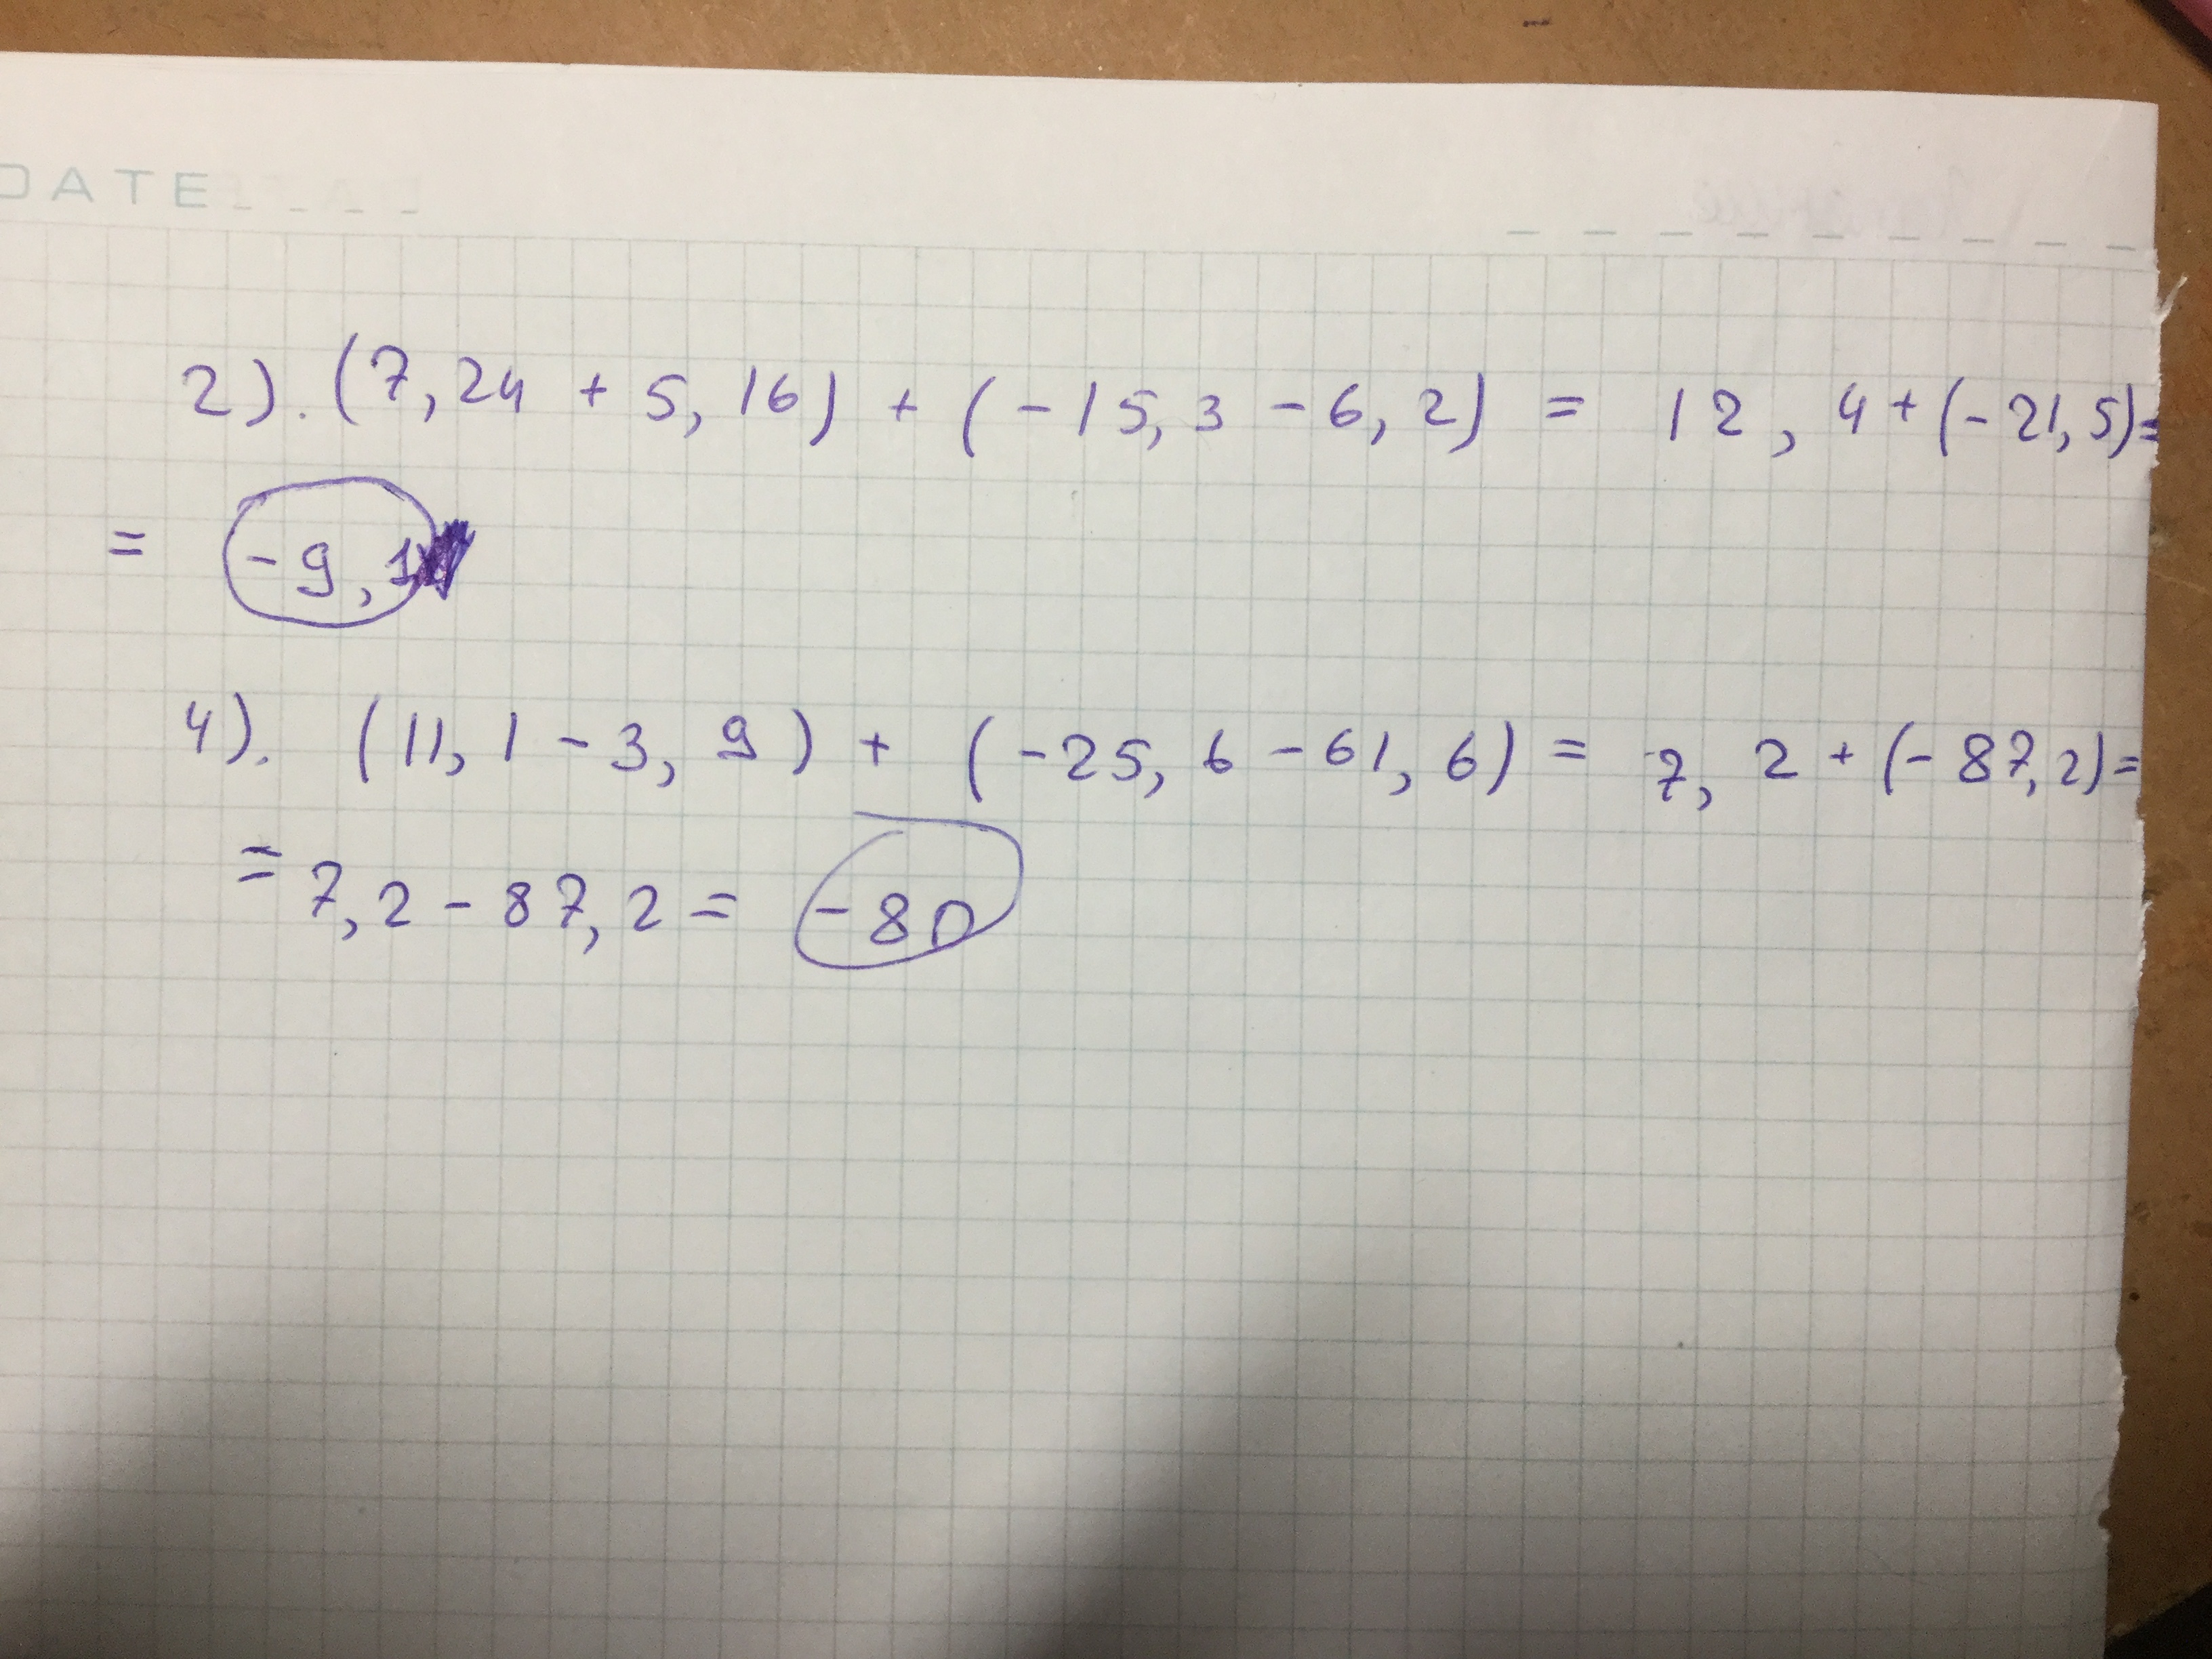 DATE
2). (7,24 + 5,16) + (-15,3 - 6,2) = 12,4 + (-21,5) =
= -9,1
4). (11,1 - 3,9) + (-25,6 - 61,6) = 7,2 + (-87,2) =
= 7,2 - 87,2 = -80